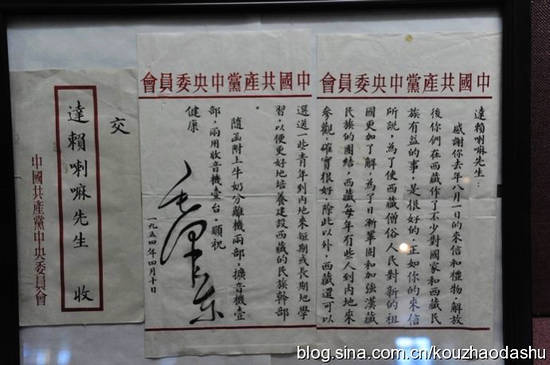 中國共產黨中央委員會
達賴喇嘛先生：
感謝你去八月一日的來信和禮物．解放
後你們在西藏作了不少對國家和西藏民
族有益的事．是很好的．正如你的來信
所說．為了使西藏僧俗人民對新的祖
國更加了解．為了日漸鞏固和加強漢藏
民族的團結．西藏每年有些人到內地來
參觀．確實很好．除此以外．西藏還可以
中國共產黨中央委員會
選送一些青年到內地來短期或長期地學
習．以便更好地培養建設西藏的民族幹部
隨函附上牛奶分離機兩部．擴音機壹
部．兩用收音機壹台．順祝
健康
毛澤東
一九五四年四月十日
交
達賴喇嘛先生 收
中國共產黨中央委員會
blog.sina.com.cn/kouzhaodashu